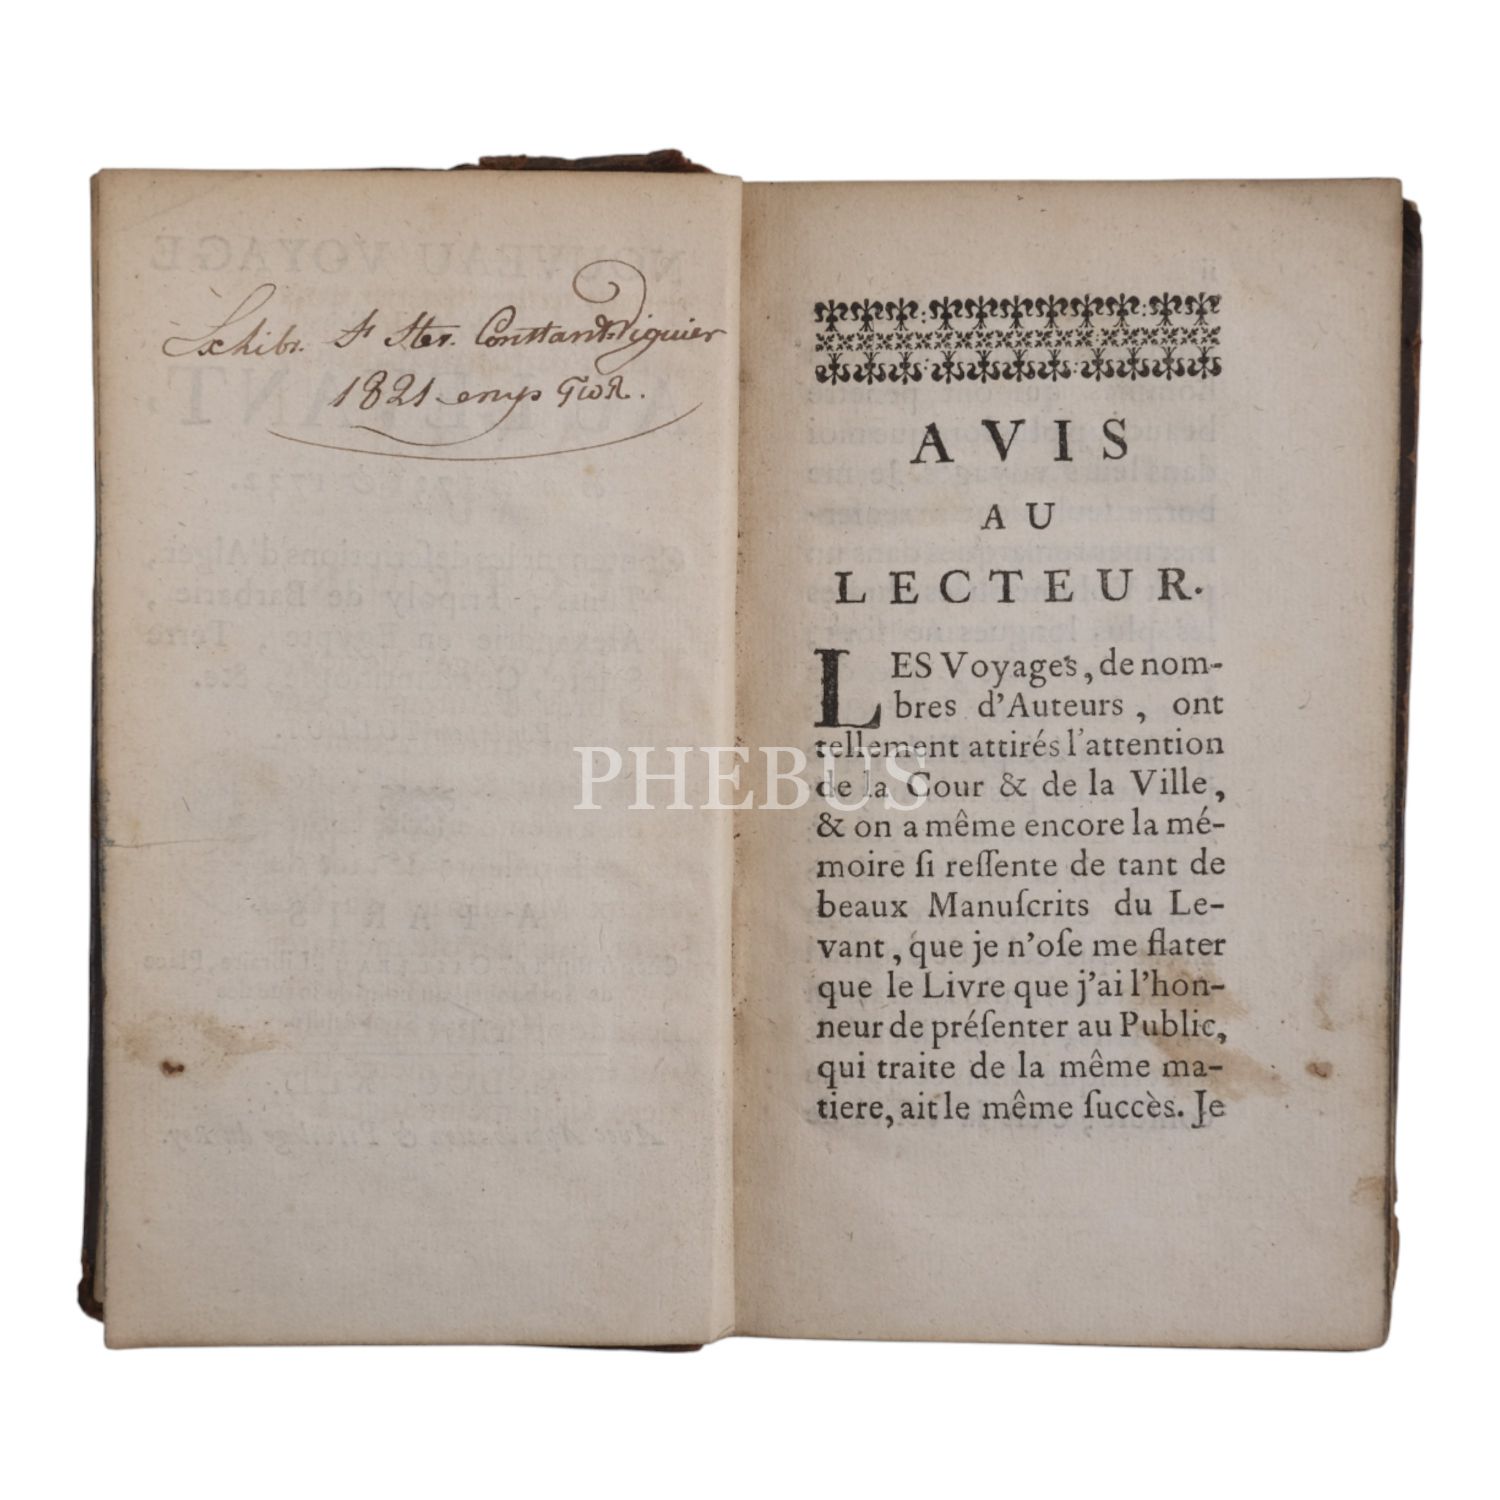 1821
AVIS
AU
LECTEUR.
LES Voyages, de nom-
bres d'Auteurs, ont
tellement attirés l'attention
de la Cour & de la Ville,
& on a même encore la mé-
moire ſi reſſente de tant de
beaux Manuſcrits du Le-
vant, que je n'oſe me flater
que le Livre que j'ai l'hon-
neur de préſenter au Public,
qui traite de la même ma-
tiere, ait le même ſuccès. Je
PHEBUS